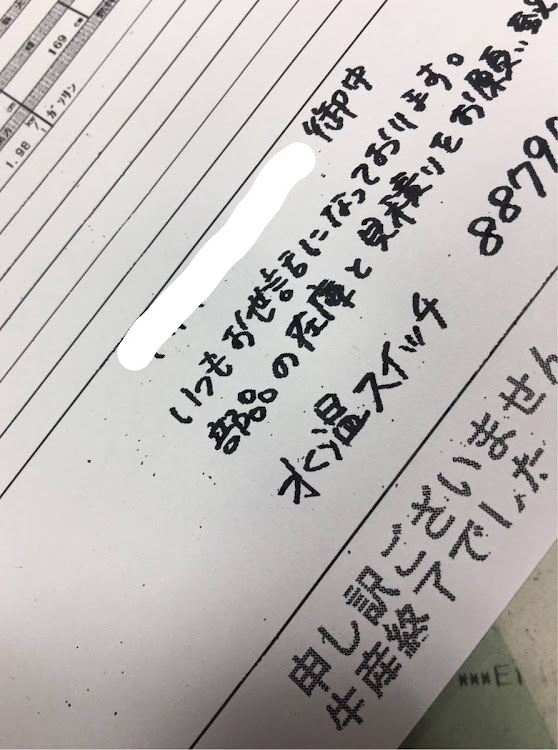 169
ガソリン
1.98
御中
いつもお世話になっております。
部品の在庫と見積りをお願い致
水温スイッチ
8879
申し訳ございません
生産終了でした
***E1